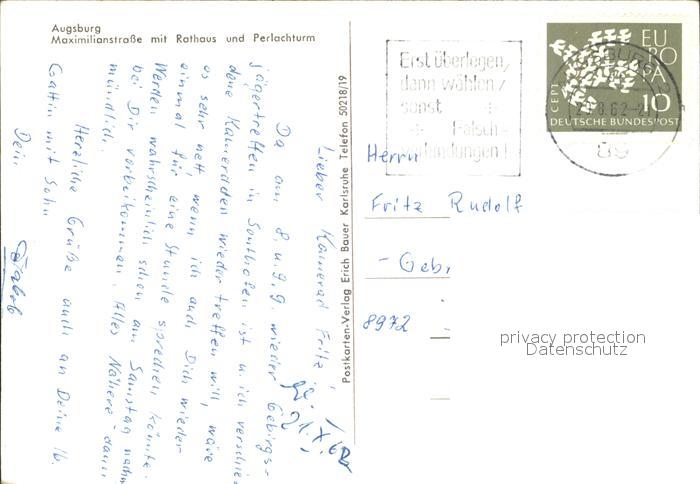 Augsburg
Maximilianstraße mit Rathaus und Perlachturm
Lieber Kamerad Fritz!
Da am 8. u. 9. 9. wieder Gebirgs-
jägertreffen in Sonthofen ist u. ich verschie-
dene Kameraden wieder treffen will, wäre
es sehr nett, wenn ich auch Dich wieder
einmal für eine Stunde sprechen könnte.
Werden wahrscheinlich schon am Samstag nachm
bei Dir vorbeikommen. Alles Nähere dann
mündlich.
Herzliche Grüße auch an Deine lb.
Gattin mit Sohn
Dein
Postkarten-Verlag Erich Bauer Karlsruhe Telefon 50218/19
Erst überlegen,
dann wählen,
sonst
Falsch-
verbindungen!
EU
RO
PA
CEPT
10
DEUTSCHE BUNDESPOST
89
Herrn
Fritz Rudolf
- Geb.
8972
privacy protection
Datenschutz